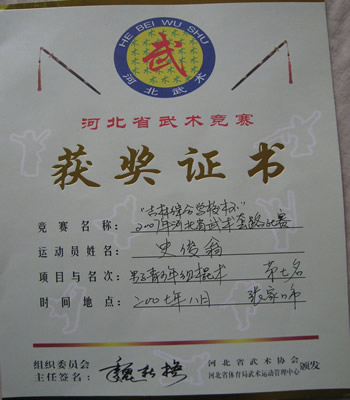 HE BEI WU SHU
武
河北武术
河北省武术竞赛
获奖证书
竞赛名称： 2007年河北省武术套路比赛
运动员姓名： 史俊
项目与名次： 男子青少年组棍术 第七名
时间地点： 二00七年八月 张家口市
组织委员会
主任签名：
河北省武术协会
河北省体育局武术运动管理中心
颁发